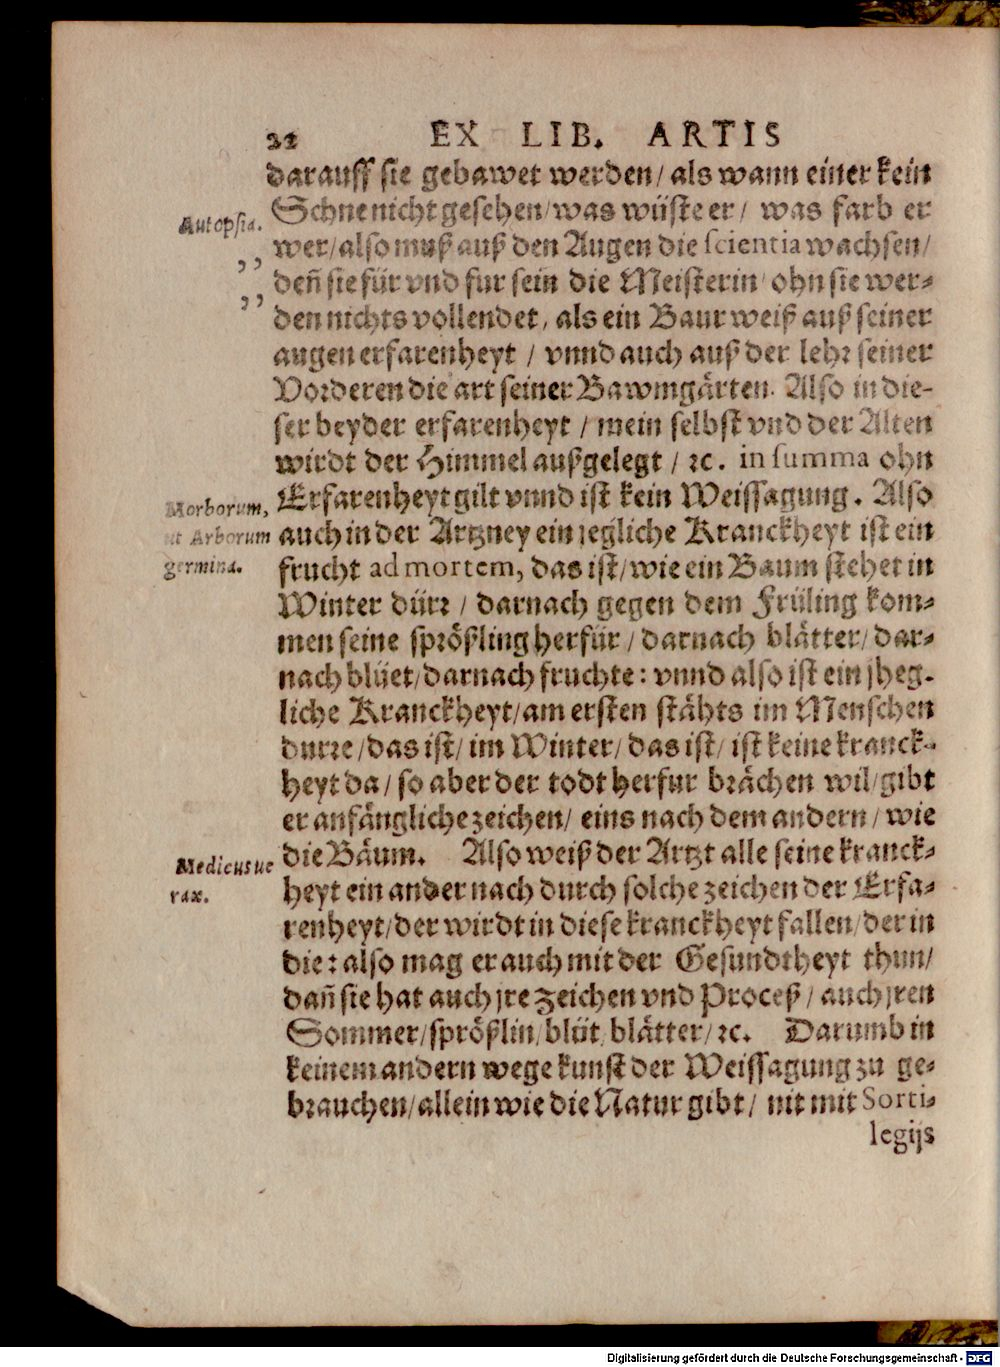 22 EX LIB. ARTIS
darauff sie gebawet werden/ als wann einer kein
Autopsia.
Schne nicht gesehen/ was wüste er/ was farb er
wer/ also muß auß den Augen die scientia wachsen/
,,
deñ sie für vnd fur sein die Meisterin/ ohn sie wer-
,,
den nichts vollendet, als ein Baur weiß auß seiner
augen erfarenheyt / vnnd auch auß der lehr seiner
Vorderen die art seiner Bawmgärten. Also in die-
ser beyder erfarenheyt / mein selbst vnd der Alten
wirdt der Himmel außgelegt / ꝛc. in summa ohn
Erfarenheyt gilt vnnd ist kein Weissagung. Also
Morborum,
ut Arborum
germina.
auch in der Artzney ein jegliche Kranckheyt ist ein
frucht ad mortem, das ist/ wie ein Baum stehet in
Winter dürr / darnach gegen dem Früling kom-
men seine sprößling herfür / darnach blätter/ dar-
nach blüet/ darnach fruchte: vnnd also ist ein jheg-
liche Kranckheyt/ am ersten stähts im Menschen
durre/ das ist/ im Winter/ das ist/ ist keine kranck-
heyt da/ so aber der todt herfur brächen wil/ gibt
er anfängliche zeichen/ eins nach dem andern/ wie
die Bäum. Also weiß der Artzt alle seine kranck-
Medicus ve
rax.
heyt ein ander nach durch solche zeichen der Erfa-
renheyt/ der wirdt in diese kranckheyt fallen/ der in
die: also mag er auch mit der Gesundtheyt thun/
dañ sie hat auch jre zeichen vnd Proceß / auch jren
Sommer/ sprößlin/ blüt/ blätter/ ꝛc. Darumb in
keinem andern wege kunst der Weissagung zu ge-
brauchen/ allein wie die Natur gibt/ nit mit Sorti-
legijs
Digitalisierung gefördert durch die Deutsche Forschungsgemeinschaft - DFG